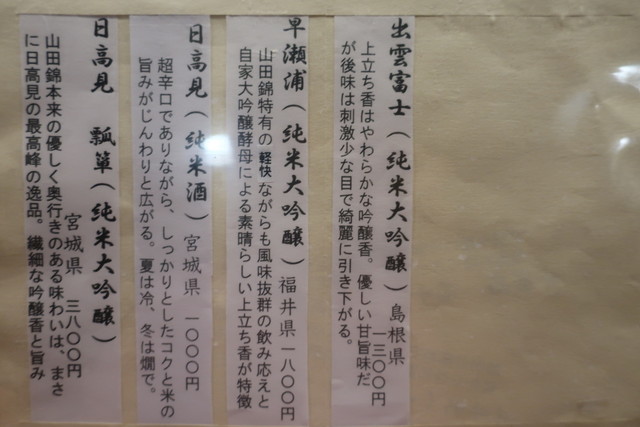 出雲富士（純米大吟醸）島根県
一三〇〇円
上立ち香はやわらかな吟醸香。優しい甘旨味だ
が後味は刺激少な目で綺麗に引き下がる。
早瀬浦（純米大吟醸）福井県一八〇〇円
山田錦特有の軽快ながらも風味抜群の飲み応えと
自家大吟醸酵母による素晴らしい上立ち香が特徴
日高見（純米酒）宮城県　一〇〇〇円
超辛口でありながら、しっかりとしたコクと米の
旨みがじんわりと広がる。夏は冷、冬は燗で。
日高見　瓢箪（純米大吟醸）
宮城県　三八〇〇円
山田錦本来の優しく奥行きのある味わいは、まさ
に日高見の最高峰の逸品。繊細な吟醸香と旨み